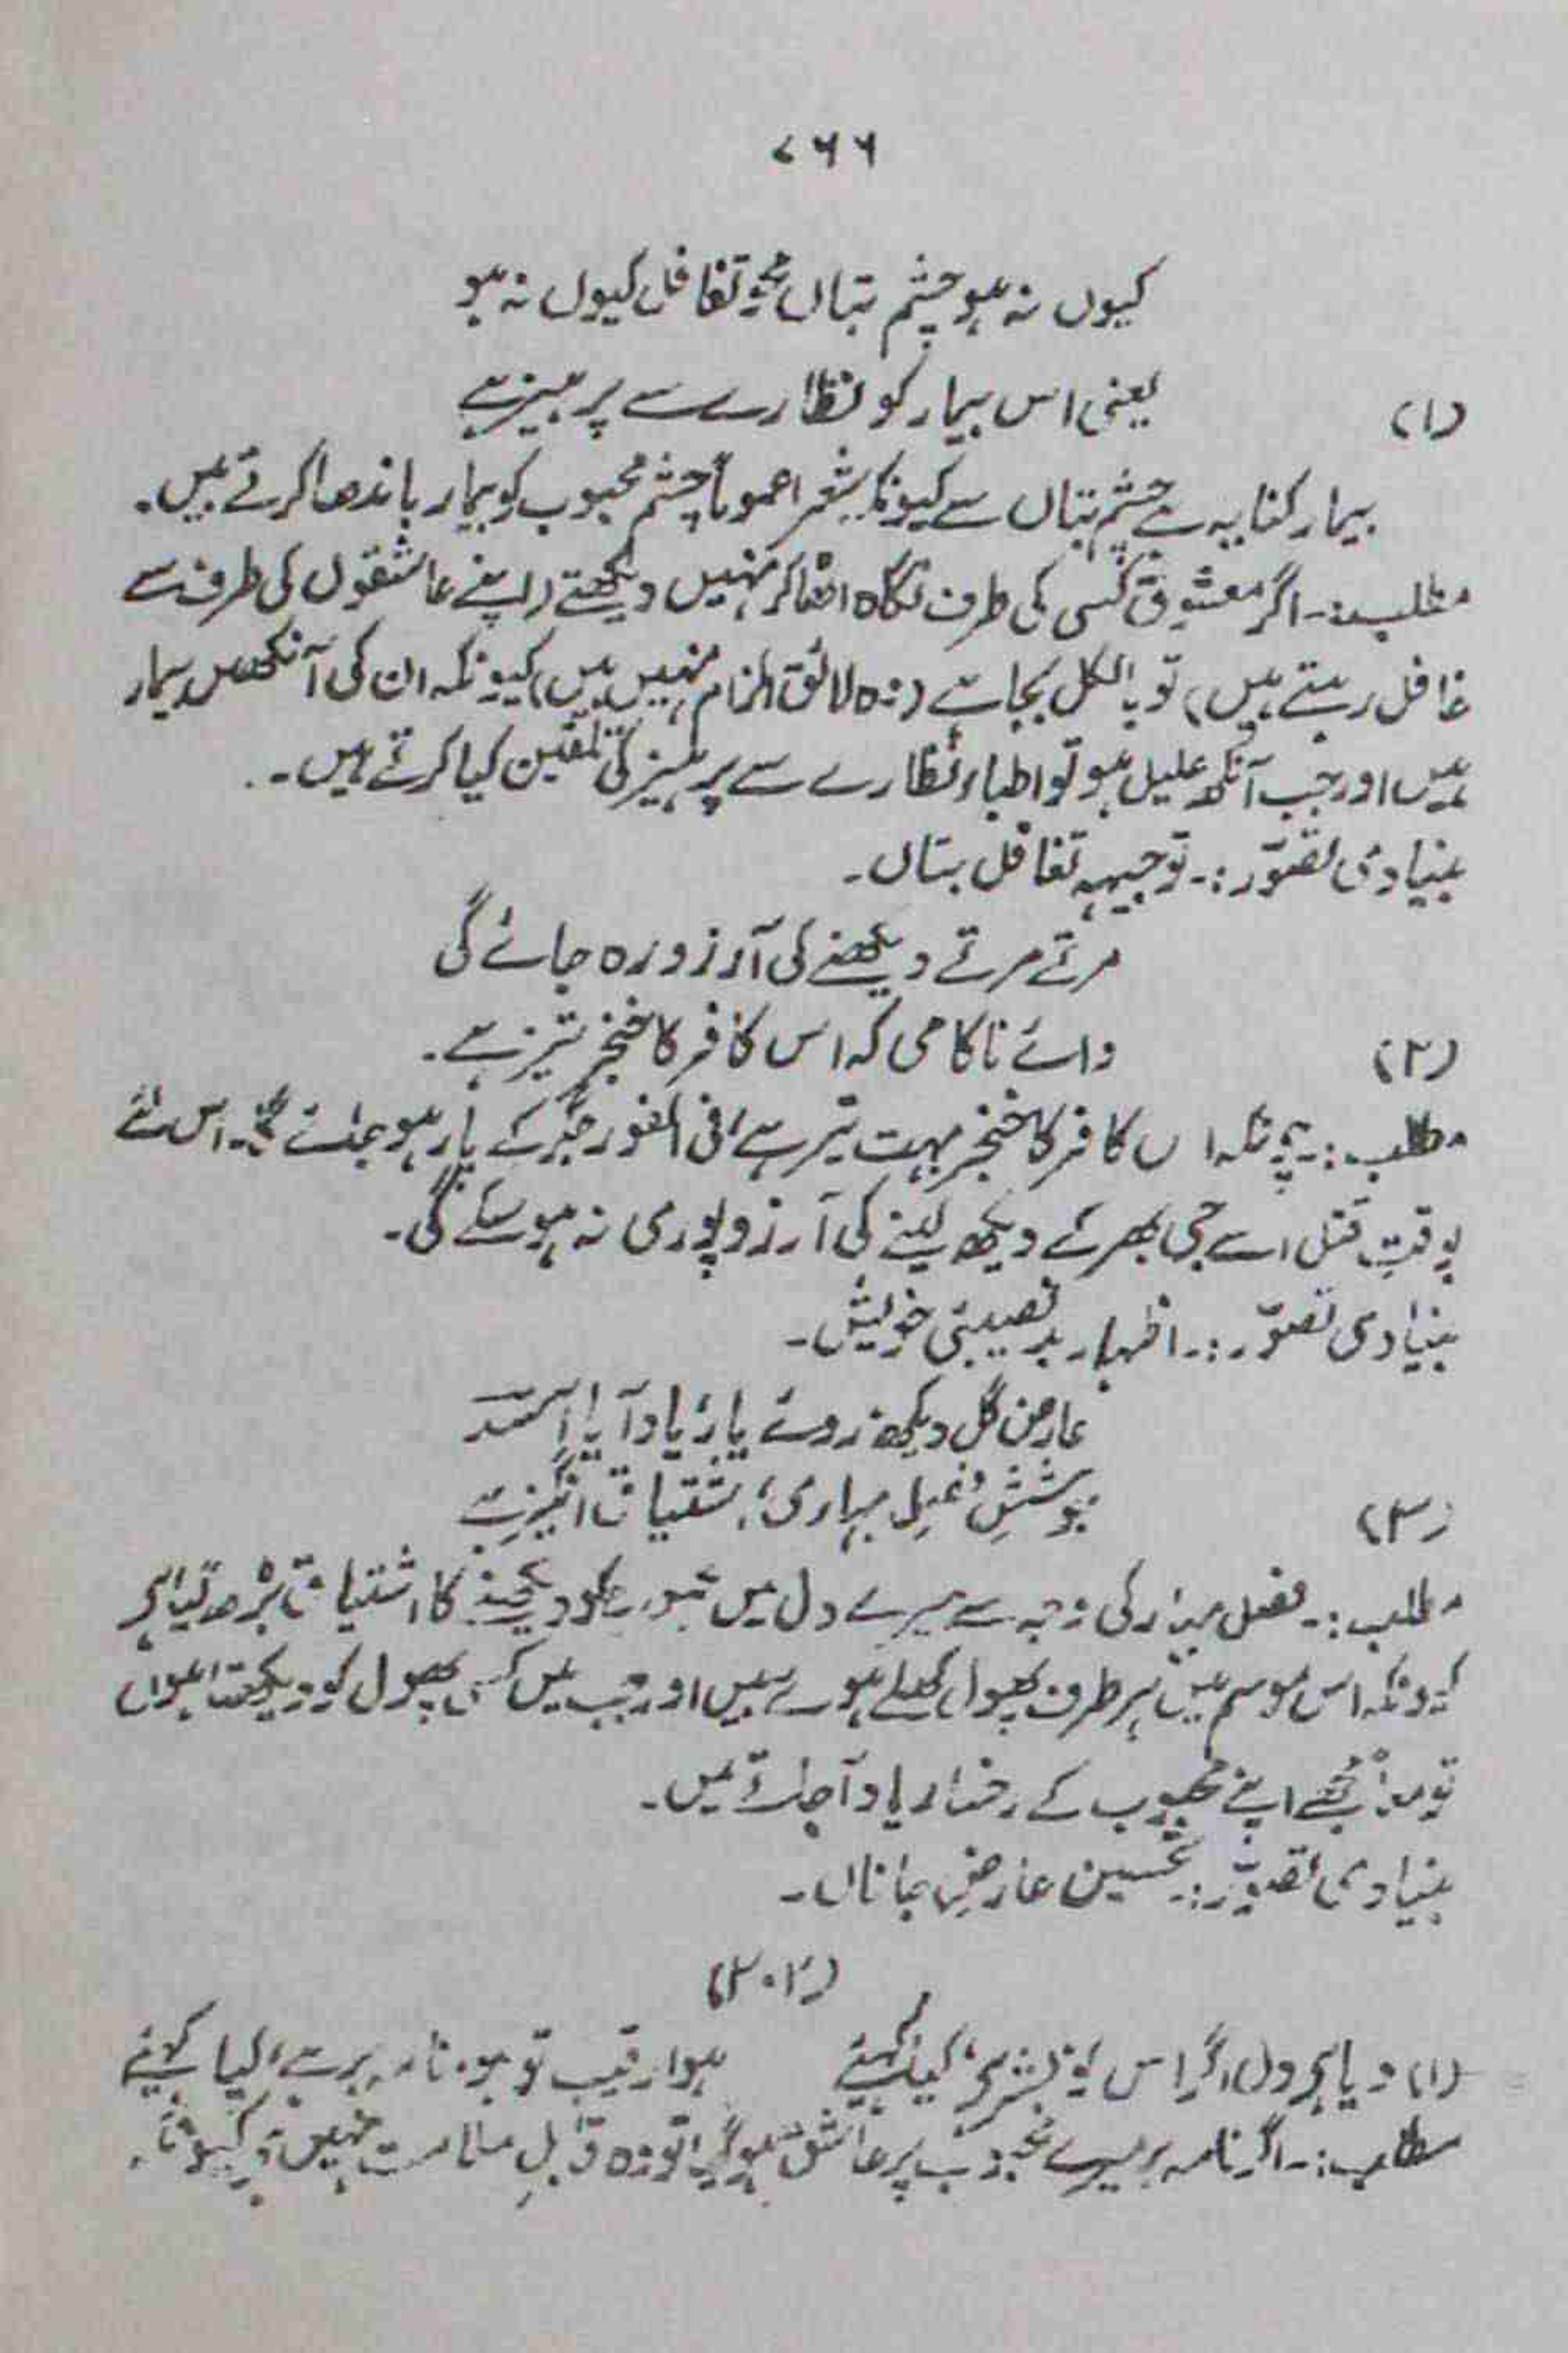 ۷۶۶
کیوں نہ ہو چشم بتاں محو تغافل کیوں نہ ہو
(۱) یعنی اس بیمار کو نظارے سے پرہیز ہے
بیمار کنایہ ہے چشم بتاں سے کیونکہ شعرا عموماً چشم محبوب کو بیمار باندھا کرتے ہیں۔
مطلب:۔ اگر معشوق کسی کی طرف نگاہ اٹھا کر نہیں دیکھتے (اپنے عاشقوں کی طرف سے
غافل رہتے ہیں) تو بالکل بجا ہے (وہ لائق الزام نہیں ہیں) کیونکہ ان کی آنکھیں بیمار
ہیں اور جب آنکھ علیل ہو تو اطباء نظارے سے پرہیز کی تلقین کیا کرتے ہیں۔
بنیادی تصوّر:۔ توجیہہ تغافل بتاں۔
مرتے مرتے دیکھنے کی آرزو رہ جائے گی
(۲) وائے ناکامی کہ اس کافر کا خنجر تیز ہے۔
مطلب:۔ چونکہ اس کافر کا خنجر بہت تیز ہے فی الفور جگر کے پار ہو جائے گا۔ اس لئے
بوقتِ قتل اسے جی بھر کے دیکھ لینے کی آرزو پوری نہ ہو سکے گی۔
بنیادی تصوّر:۔ اظہار بدنصیبیٔ خویش۔
عارض گل دیکھ روئے یار یاد آیا اسدؔ
(۳) جوششِ فصلِ بہاری اشتیاق انگیز ہے
مطلب:۔ فصل بہار کی وجہ سے میرے دل میں محبوب کو دیکھنے کا اشتیاق بڑھ گیا ہے
کیونکہ اس موسم میں ہر طرف پھول کھلے ہوئے ہیں اور جب میں کسی پھول کو دیکھتا ہوں
تو معاً مجھے اپنے محبوب کے رخسار یاد آجاتے ہیں۔
بنیادی تصوّر:۔ تحسین عارضِ جاناں۔
(۲۰۲)
(۱) دیا ہے دل اگر اس کو بشر ہے کیا کہئے ہوا رقیب تو ہو نامہ بر ہے کیا کہئے
مطلب:۔ اگر نامہ بر میرے محبوب پر عاشق ہو گیا تو وہ قابلِ ملامت نہیں ہے کیونکہ